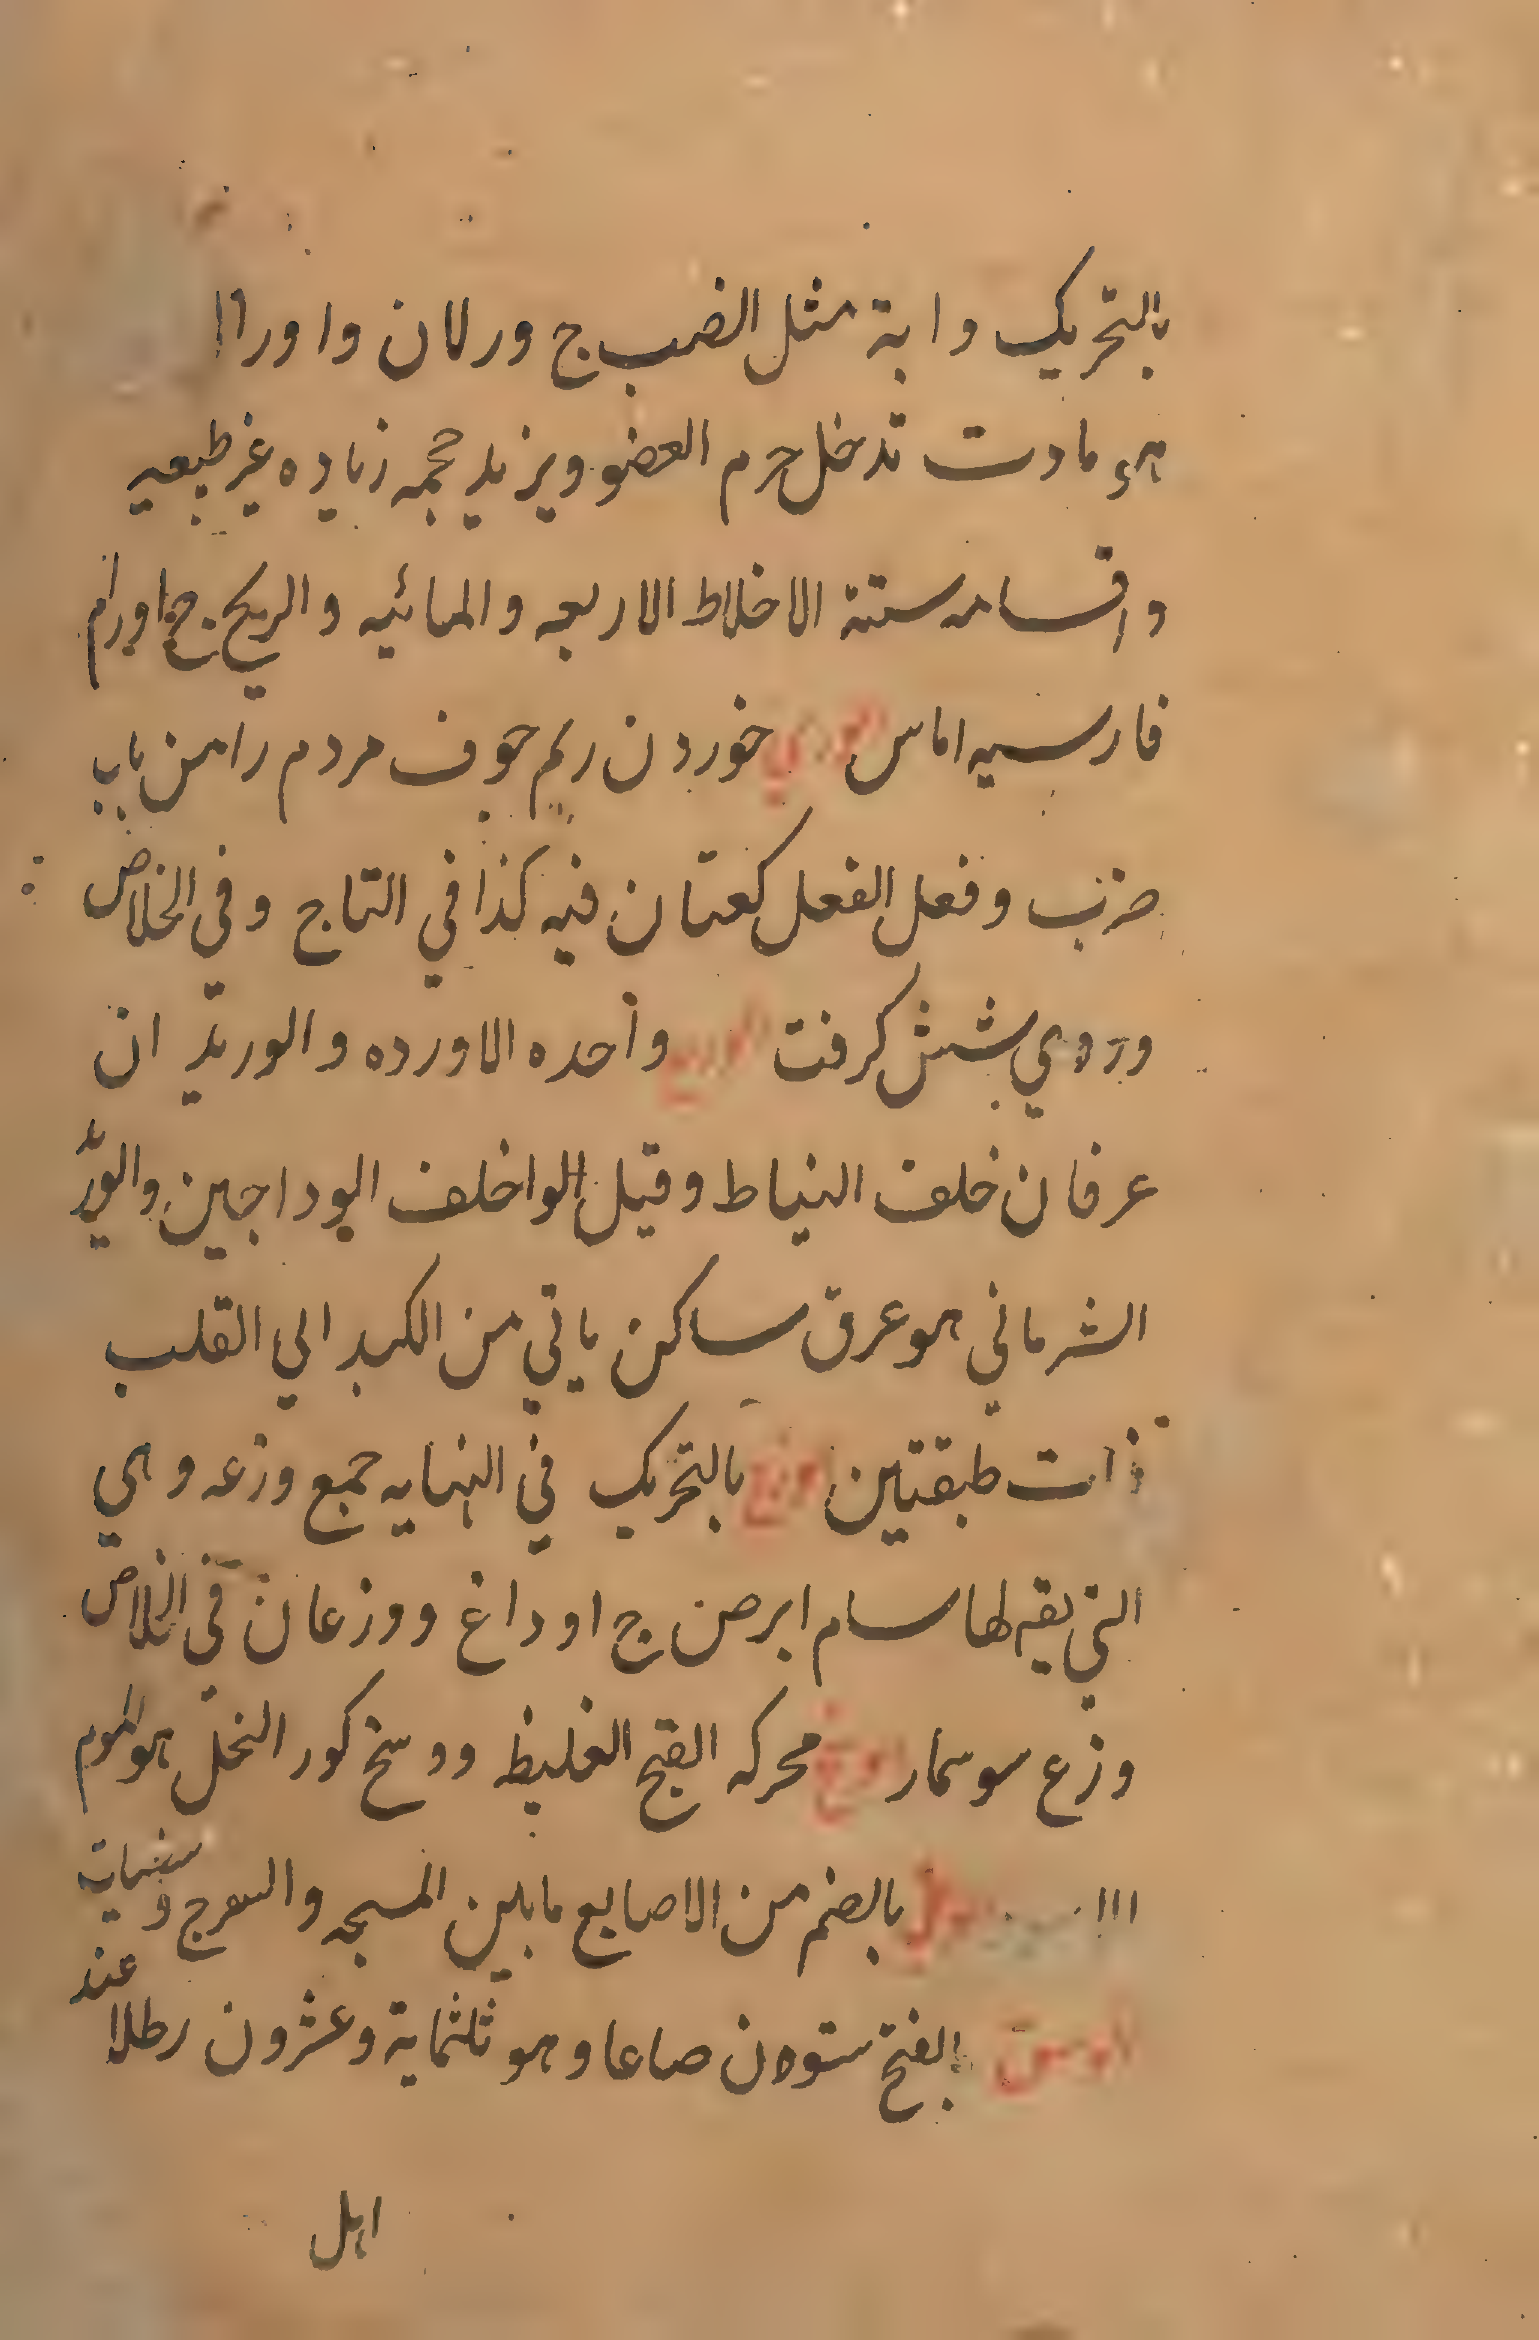 بالتحريك دابة مثل الضب ج ورلان واورال
هو مادت تدخل جرم العضو ويزيد حجمه زياده غير طبعيه
واقسامه ستة الاخلاط الاربعه والمائيه والريح ج اورام
فارسيه اماس خوردن ريم جوف مردم را من باب
ضرب وفعل الفعل كعتان فيه كذا في التاج وفي الخلاص
وروي بشش كرفت واحده الاورده والوريد ان
عرقان خلف النياط وقيل الواخلف الوداجين والوريد
الشرياني هو عرق ساكن ياتي من الكبد الي القلب
ذات طبقتين وزغ بالتحريك في النهايه جمع وزعه وهي
التي يقه لها سام ابرص ج اوداغ ووزعان في الخلاص
وزع سوسمار الوسخ محركه القيح الغليظ ووسخ كور النحل هو الموم
بالضم من الاصابع مابين المسبحه و
الوسق بالفتح ستون صاعا وهو ثلثماية وعشرون رطلا عند
اهل